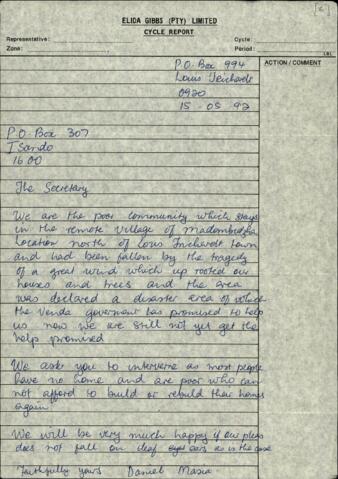 [6]
ELIDA GIBBS (PTY) LIMITED
CYCLE REPORT
Representative: Cycle:
Zone: Period:
LBL
ACTION / COMMENT
P.O. Box 994
Louis Trichardt
0920
15-05-92
P.O. Box 307
Isando
1600
The Secretary
We are the poor community which stays
in the remote village of Madombidzha
location north of Louis Trichardt town
and had been fallen by the tragedy
of a great wind which up rooted our
houses and trees and the area
was declared a disaster area of which
the Venda goverment has promised to help
us now we are still not yet get the
help promised
We ask you to interverne as most people
have no home and are poor who can
not afford to build or rebuild their homes
again
We will be very much happy if our pleas
does not fall on deaf ears as is the case
Faithfully yours Daniel Masia